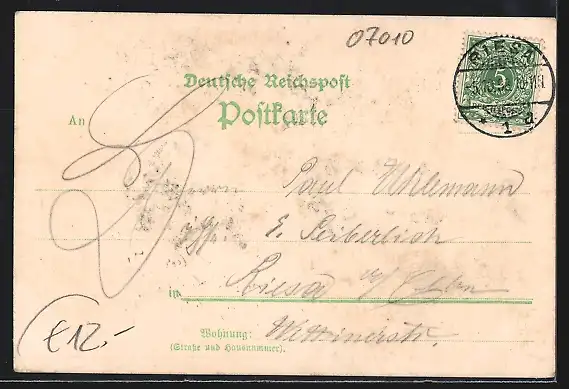 07010
RIESA
5
1 d.
Deutsche Reichspost
Postkarte
An
Herrn Paul
E. Seiberlich
in Riesa a/Elbe
Wohnung: Wettinerstr.
(Straße und Hausnummer).
£12.-